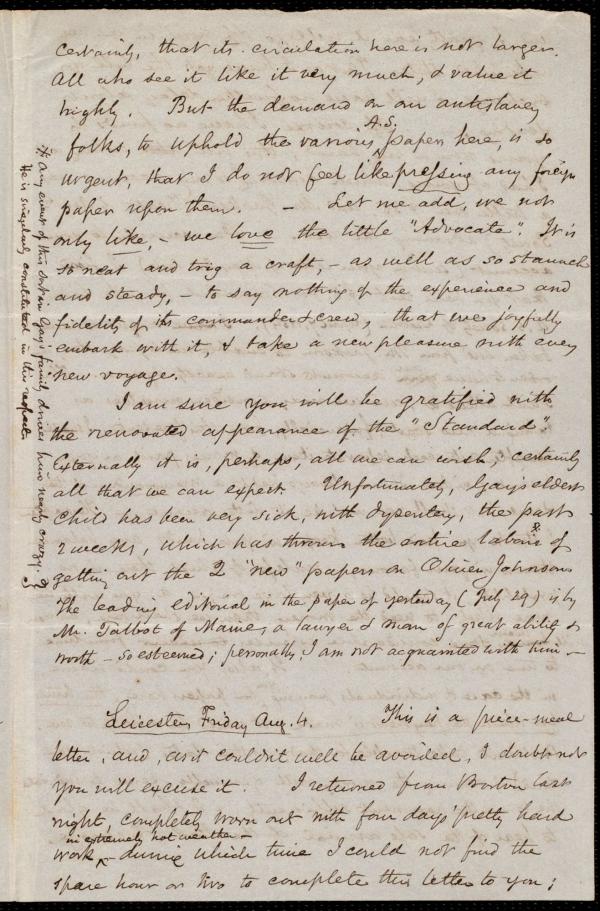 certainly, that its circulation here is not larger.
All who see it like it very much, & value it
highly. But the demand on our antislavery
folks, to uphold the various A.S. papers here, is so
urgent, that I do not feel like pressing any foreign
paper upon them. – Let me add, we not
only like, – we love the little "Advocate". It is
so neat and trig a craft, – as well as so staunch
and steady, – to say nothing of the experience and
fidelity of its commander & crew, that we joyfully
embark with it, & take a new pleasure with every
new voyage.
I am sure you will be gratified with
the renovated appearance of the "Standard".
Externally it is, perhaps, all we can wish, certainly
all that we can expect. Unfortunately, Gay's eldest
child has been very sick, with dysentery, the past
2 weeks, which has thrown the entire labor* of
getting out the 2 "new" papers on Oliver Johnson.
The leading editorial in the paper of yesterday (July 29) is by
Mr. Talbot of Maine, a lawyer & man of great ability &
worth – so esteemed; personally, I am not acquainted with him –
Leicester, Friday Aug. 4. This is a piece-meal
letter, and, as it couldn't well be avoided, I doubt not
you will excuse it. I returned from Boston last
night, completely worn out with four days' pretty hard
work, in extremely hot weather – during which time I could not find the
spare hour or two to complete this letter to you;
* Any event of this sort in Gay's family drives him nearly crazy.
He is singularly constituted in this respect.